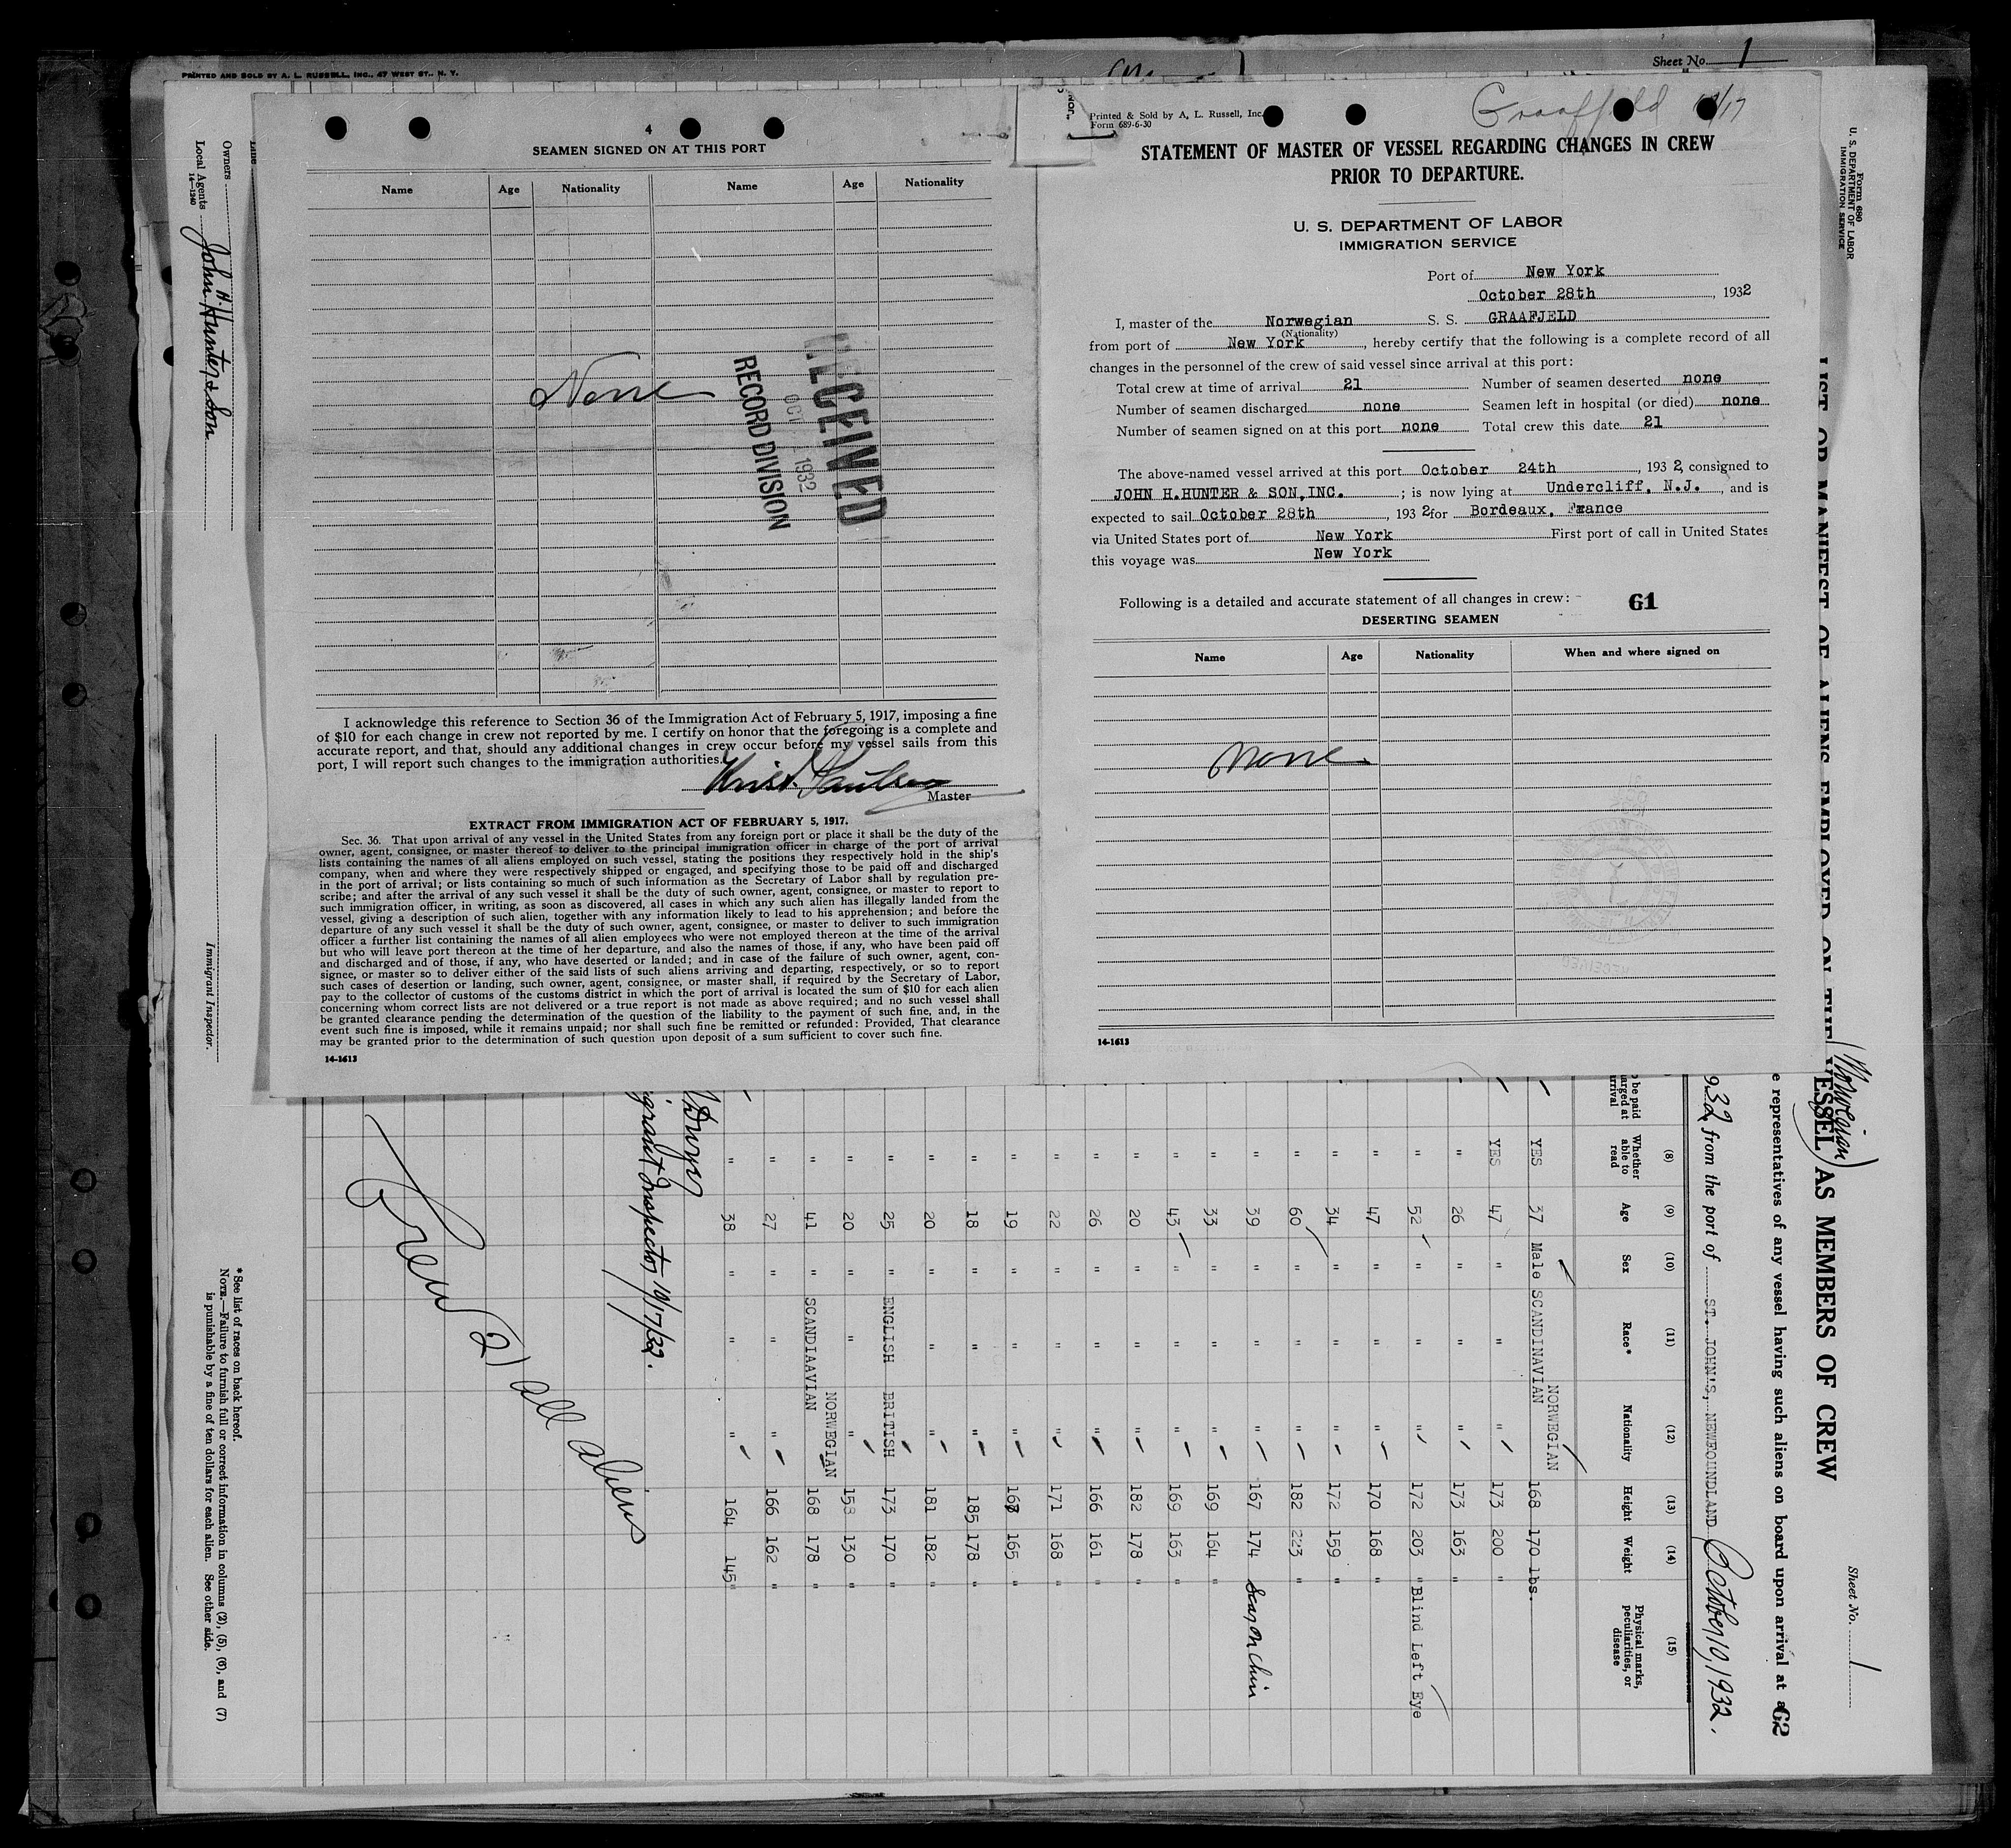 PRINTED AND SOLD BY A. L. RUSSELL, INC., 47 WEST ST., N. Y.
Sheet No. 1
4
SEAMEN SIGNED ON AT THIS PORT
Name Age Nationality Name Age Nationality
None
RECEIVED
1932
RECORD DIVISION
I acknowledge this reference to Section 36 of the Immigration Act of February 5, 1917, imposing a fine
of $10 for each change in crew not reported by me. I certify on honor that the foregoing is a complete and
accurate report, and that, should any additional changes in crew occur before my vessel sails from this
port, I will report such changes to the immigration authorities.
Master
EXTRACT FROM IMMIGRATION ACT OF FEBRUARY 5, 1917.
Sec. 36. That upon arrival of any vessel in the United States from any foreign port or place it shall be the duty of the
owner, agent, consignee, or master thereof to deliver to the principal immigration officer in charge of the port of arrival
lists containing the names of all aliens employed on such vessel, stating the positions they respectively hold in the ship's
company, when and where they were respectively shipped or engaged, and specifying those to be paid off and discharged
in the port of arrival; or lists containing so much of such information as the Secretary of Labor shall by regulation pre-
scribe; and after the arrival of any such vessel it shall be the duty of such owner, agent, consignee, or master to report to
such immigration officer, in writing, as soon as discovered, all cases in which any such alien has illegally landed from the
vessel, giving a description of such alien, together with any information likely to lead to his apprehension; and before the
departure of any such vessel it shall be the duty of such owner, agent, consignee, or master to deliver to such immigration
officer a further list containing the names of all alien employees who were not employed thereon at the time of the arrival
but who will leave port thereon at the time of her departure, and also the names of those, if any, who have been paid off
and discharged and of those, if any, who have deserted or landed; and in case of the failure of such owner, agent, con-
signee, or master so to deliver either of the said lists of such aliens arriving and departing, respectively, or so to report
such cases of desertion or landing, such owner, agent, consignee, or master shall, if required by the Secretary of Labor,
pay to the collector of customs of the customs district in which the port of arrival is located the sum of $10 for each alien
concerning whom correct lists are not delivered or a true report is not made as above required; and no such vessel shall
be granted clearance pending the determination of the question of the liability to the payment of such fine, and, in the
event such fine is imposed, while it remains unpaid; nor shall such fine be remitted or refunded: Provided, That clearance
may be granted prior to the determination of such question upon deposit of a sum sufficient to cover such fine.
14-1613
Printed & Sold by A. L. Russell, Inc.
Form 689-6-30
STATEMENT OF MASTER OF VESSEL REGARDING CHANGES IN CREW
PRIOR TO DEPARTURE.
U. S. DEPARTMENT OF LABOR
IMMIGRATION SERVICE
Port of New York
October 28th, 1932
I, master of the Norwegian S. S. GRAAFJELD
(Nationality)
from port of New York, hereby certify that the following is a complete record of all
changes in the personnel of the crew of said vessel since arrival at this port:
Total crew at time of arrival 21 Number of seamen deserted none
Number of seamen discharged none Seamen left in hospital (or died) none
Number of seamen signed on at this port none Total crew this date 21
The above-named vessel arrived at this port October 24th, 1932, consigned to
JOHN H. HUNTER & SON, INC.; is now lying at Undercliff, N.J., and is
expected to sail October 28th, 1932 for Bordeaux, France
via United States port of New York First port of call in United States
this voyage was New York
Following is a detailed and accurate statement of all changes in crew:
61
DESERTING SEAMEN
Name Age Nationality When and where signed on
None
14-1613
Form 680
U. S. DEPARTMENT OF LABOR
IMMIGRATION SERVICE
LIST OR MANIFEST OF ALIENS EMPLOYED ON THE VESSEL AS MEMBERS OF CREW
(Norwegian)
Sheet No. 1
e representatives of any vessel having such aliens on board upon arrival at a
62
932 from the port of ST. JOHN'S, NEWFOUNDLAND October 10, 1932.
(8) (9) (10) (11) (12) (13) (14) (15)
Whether able to read Age Sex Race* Nationality Height Weight Physical marks, peculiarities, or disease
YES 37 Male SCANDINAVIAN NORWEGIAN 168 170 lbs.
YES 47 " " " 173 200 "
" 26 " " " 173 163 "
" 52 " " " 172 203 " Blind Left Eye
" 47 " " " 170 168 "
" 34 " " " 172 159 "
" 60 " " " 182 223 "
" 39 " " " 167 174 Scar on chin
" 33 " " " 169 164 "
" 43 " " " 169 163 "
" 20 " " " 182 178 "
" 26 " " " 166 161 "
" 22 " " " 171 168 "
" 19 " " " 168 165 "
" 18 " " " 185 178 "
" 20 " " " 181 182 "
" 25 " ENGLISH BRITISH 173 170 "
" 20 " " " 158 130 "
" 41 " SCANDIAAVIAN NORWEGIAN 168 178 "
" 27 " " " 166 162 "
" 38 " " " 164 145 "
Immigrant Inspector 10/17/32.
Crew (21) all aliens
* See list of races on back hereof.
NOTE.—Failure to furnish full or correct information in columns (2), (5), (6), and (7)
is punishable by a fine of ten dollars for each alien. See other side.
Line
Owners
Local Agents John H. Hunter & Son
14-1240
Immigrant Inspector.